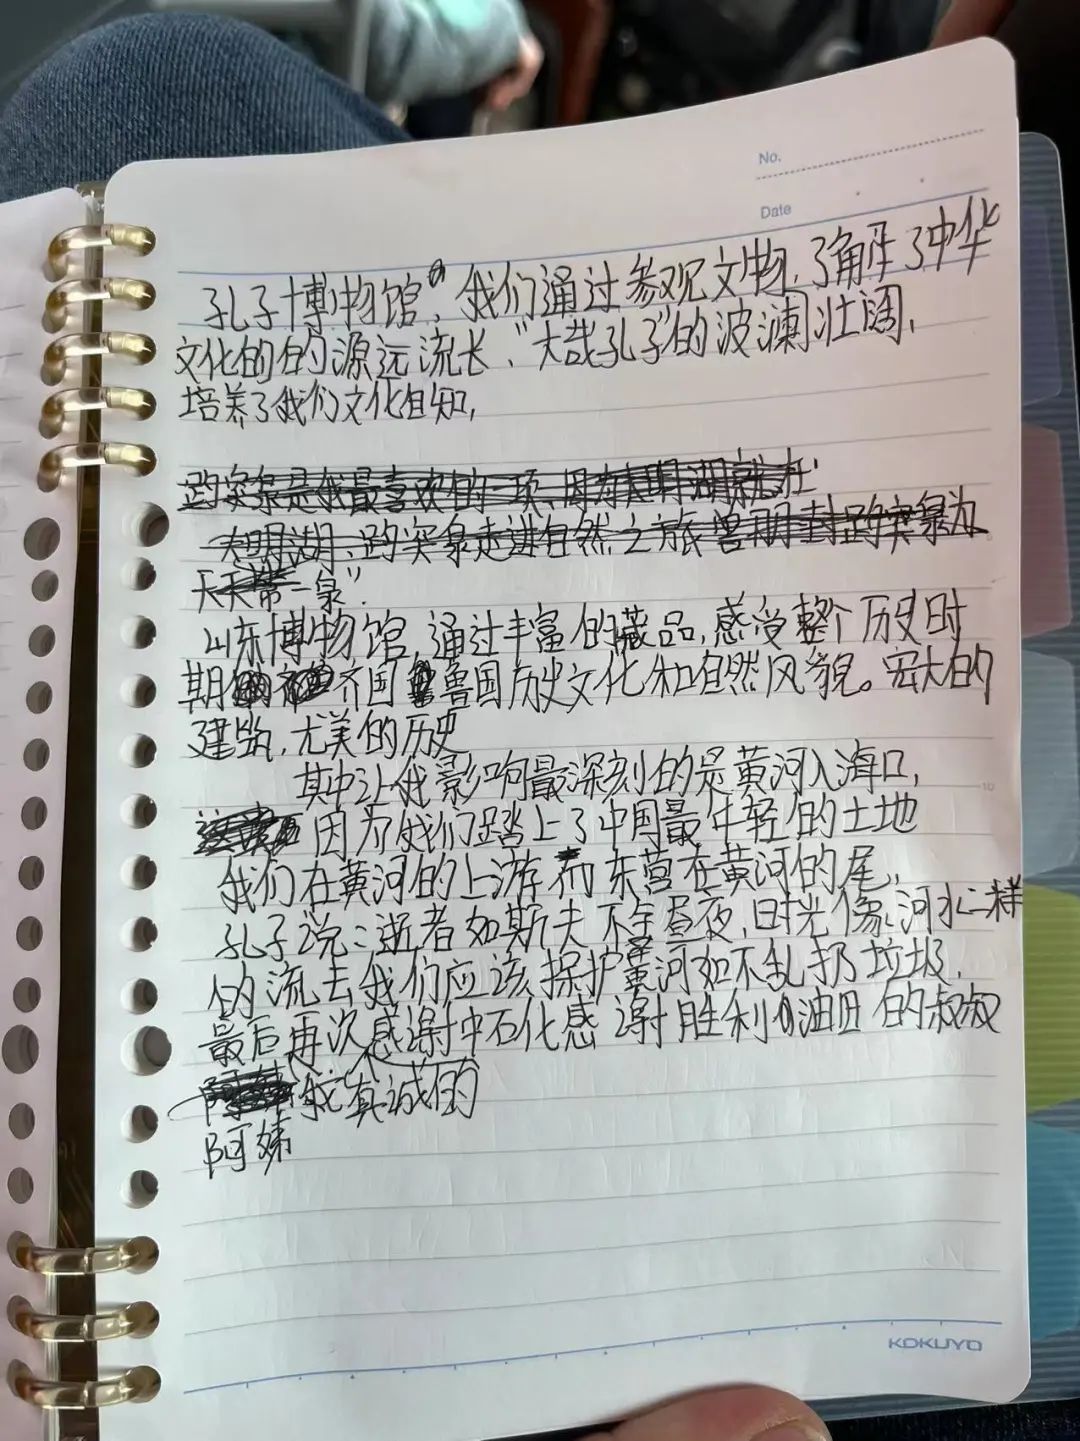 No.
Date
孔子博物馆,我们通过参观文物,了解了中华
文化的的源远流长,"大哉孔子"的波澜壮阔,
培养了我们文化自知,
趵突泉是我最喜欢的一项,因为大明湖就在
大明湖、趵突泉走进自然之旅 曾册封趵突泉为
天下第一泉".
山东博物馆,通过丰富的藏品,感受整个历史时
期 齐国 鲁国历史文化和自然风貌。宏大的
建筑,尤美的历史
其中让我影响最深刻的是黄河入海口,
因为我们踏上了中国最年轻的土地
我们在黄河的上游 而东营在黄河的尾,
孔子说:逝者如斯夫不舍昼夜,时光像河水一样
的流去我们应该保护黄河如不乱扔垃圾,
最后再次感谢中石化感谢胜利油田的叔叔
我真诚的
阿姨
KOKUYO